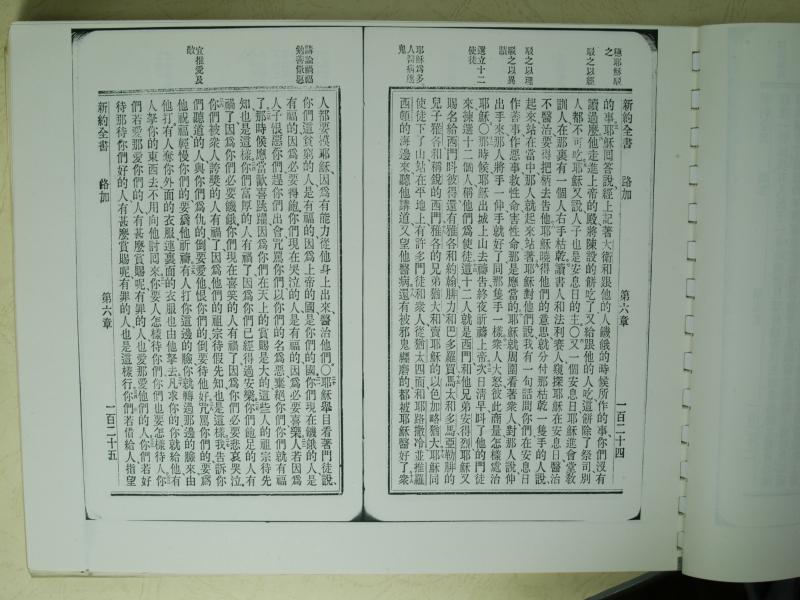 新約全書 路加 第六章 一百二十四
駁之以經
駁之以理
選立十二
使徒
耶穌為多
的事、耶穌回答說、經上記著大衛和跟他的人饑餓的時候所作的事、你們沒有
讀過麼、他走進上帝的殿、將陳設的餅吃了、又給跟他的人吃、這餅除了祭司、別
人都不可吃、耶穌又說、人子也是安息日的主〇又一個安息日、耶穌進會堂教
訓人、在那裏有一個人、右手枯乾、讀書人和法利賽人窺探耶穌在安息日醫治
不醫治、要得把柄去告他、耶穌曉得他們的意思、就分付那枯乾一隻手的人說、
站在當中、那人就起來站著、耶穌對他們說、我有一句話問你們、在安息日
作善事作惡事、救性命害性命、那是應當的、耶穌就周圍看著衆人、對那人說、伸
出手來、那人將手一伸、手就好了、同那隻手一樣、衆人大怒、彼此商量怎樣處治
耶穌〇那時候耶穌出城上山去禱告、終夜祈禱上帝、次日清早叫了他的門徒
來、揀選十二個人、稱他們為使徒、這十二人就是西門、和他兄弟安得烈、耶穌又
賜名給西門叫彼得、還有雅各和約翰、腓力和巴多羅買、馬太和多馬、亞勒腓的
兒子雅各、和稱銳的西門、雅各的兄弟猶大、和賣耶穌的以色加略猶大、耶穌同
使徒下了山、站在平地上、有許多門徒和衆人、從猶太四面、和耶路撒冷、並推羅
西頓的海邊來、聽他講道、又望他醫病、還有被邪鬼纏磨的、都被耶穌醫好了、衆
人都要摸耶穌、因為有能力從他身上出來、醫治他們〇耶穌舉目看著門徒說、
你們這貧窮的人是有福的、因為上帝的國是你們的國、你們現在饑餓的人是
有福的、因為必要得飽、你們現在哭泣的人是有福的、因為必要喜樂、人若因為
人子恨惡你們、趕你們出會、咒罵你們、以你們的名為惡、棄絕你們、你們就有福
了、那時候應當歡喜踴躍、因為你們在天上的賞賜是大的、這些人的祖宗待先
知也是這樣、你們富厚的人有禍了、因為你們已經得過安樂、你們飽足的人有
禍了、因為你們必要饑餓、你們現在喜笑的人有禍了、因為你們必要悲哀哭泣、
你們被衆人誇獎的人有禍了、因為他們的祖宗待假先知也是這樣、我告訴你
們聽道的人、與你們為仇的倒要愛他、恨你們的倒要待他好、咒罵你們的要為
他祝福、輕慢你們的要為他祈禱、有人打你這邊的臉、你就轉過那邊的臉來由
他打、有人奪你外面的衣服、連裏面的衣服也由他拏去、凡求你的、你就給他、有
人拏你的東西去、不用向他討回來、你要人怎樣待你們、你們也要怎樣待人、你
們若愛那愛你們的人、有甚麼賞賜呢、有罪的人也愛那愛他們的人、你們若好
待那待你們好的人、有甚麼賞賜呢、有罪的人也是這樣行、你們若借給人指望
新約全書 路加 第六章 一百二十五
宜推愛及
敵